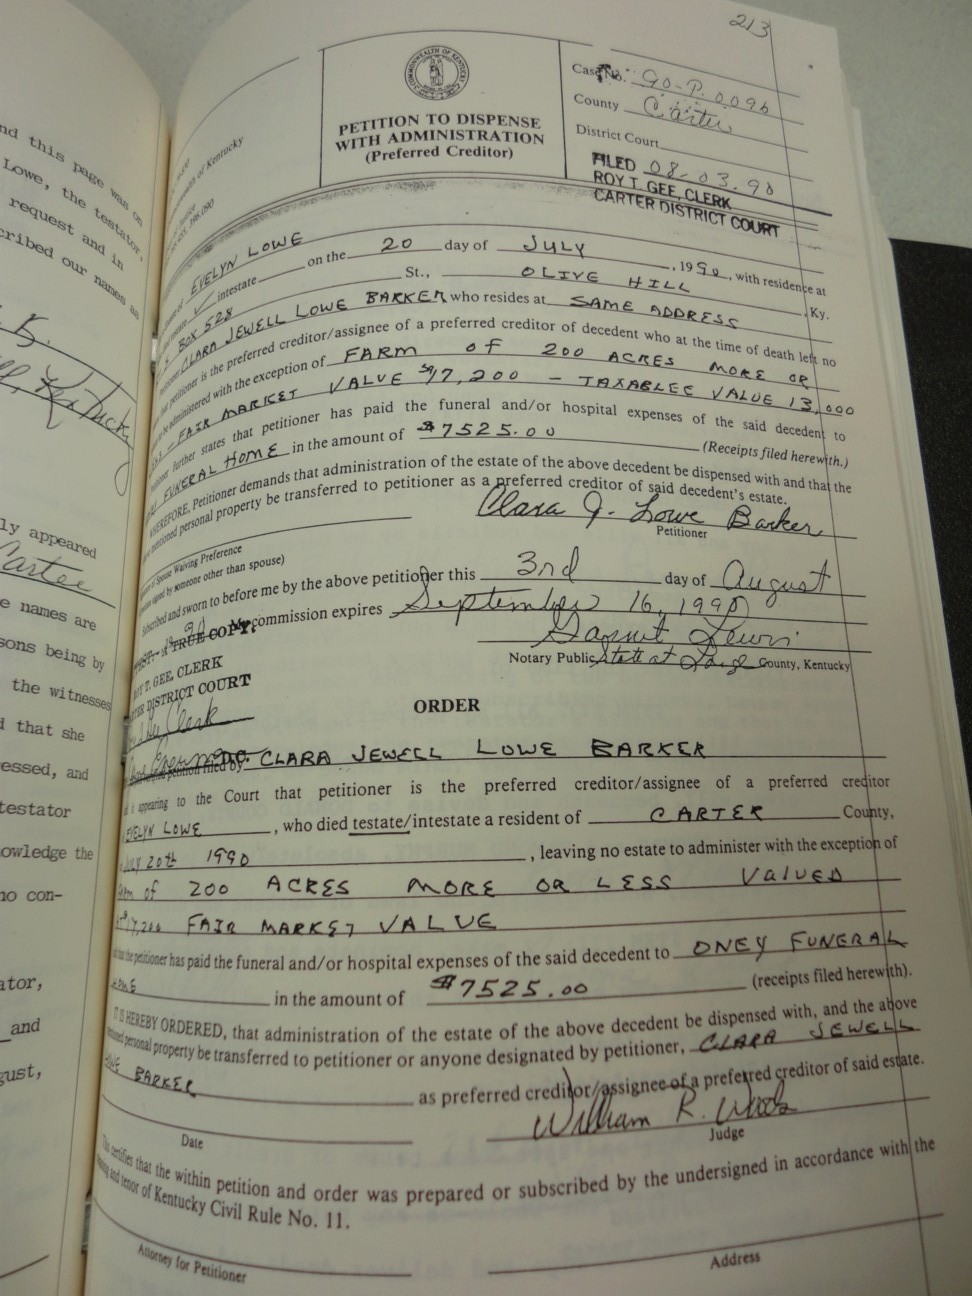 213
nd this page was on
Lowe, the testator,
request and in
cribed our names as
ly appeared
Carter
e names are
sons being by
the witnesses
d that she
essed, and
testator
owledge the
no con-
ator,
and
gust,
COMMONWEALTH OF KENTUCKY
PETITION TO DISPENSE
WITH ADMINISTRATION
(Preferred Creditor)
Case No. 90-P-0096
County Carter
District Court
FILED 08-03-90
ROY T. GEE, CLERK
CARTER DISTRICT COURT
of Kentucky
EVELYN LOWE on the 20 day of JULY, 1990, with residence at
intestate
BOX 528 St., OLIVE HILL, Ky.
CLARA JEWELL LOWE BARKER who resides at SAME ADDRESS
that petitioner is the preferred creditor/assignee of a preferred creditor of decedent who at the time of death left no
to be administered with the exception of FARM OF 200 ACRES MORE OR
FAIR MARKET VALUE $17,200 - TAXABLEE VALUE 13,000
further states that petitioner has paid the funeral and/or hospital expenses of the said decedent to
FUNERAL HOME in the amount of $7525.00 (Receipts filed herewith.)
WHEREFORE, Petitioner demands that administration of the estate of the above decedent be dispensed with and that the
mentioned personal property be transferred to petitioner as a preferred creditor of said decedent's estate.
Clara J. Lowe Barker
Petitioner
of Spouse Waiving Preference
signed by someone other than spouse)
Subscribed and sworn to before me by the above petitioner this 3rd day of August
1990 My commission expires September 16, 1990
A TRUE COPY:
Garnet Lewis
Notary Public, State at Large County, Kentucky
ROY T. GEE, CLERK
CARTER DISTRICT COURT
Clerk
D.C.
ORDER
petition filed by CLARA JEWELL LOWE BARKER
it appearing to the Court that petitioner is the preferred creditor/assignee of a preferred creditor
EVELYN LOWE, who died testate/intestate a resident of CARTER County,
July 20th 1990, leaving no estate to administer with the exception of
farm of 200 ACRES MORE OR LESS VALUED
$17,200 FAIR MARKET VALUE
that the petitioner has paid the funeral and/or hospital expenses of the said decedent to ONEY FUNERAL
HOME in the amount of $7525.00 (receipts filed herewith).
IT IS HEREBY ORDERED, that administration of the estate of the above decedent be dispensed with, and the above
mentioned personal property be transferred to petitioner or anyone designated by petitioner, CLARA JEWELL
LOWE BARKER as preferred creditor/assignee of a preferred creditor of said estate.
William R. Woods
Date Judge
This certifies that the within petition and order was prepared or subscribed by the undersigned in accordance with the
meaning and tenor of Kentucky Civil Rule No. 11.
Attorney for Petitioner Address